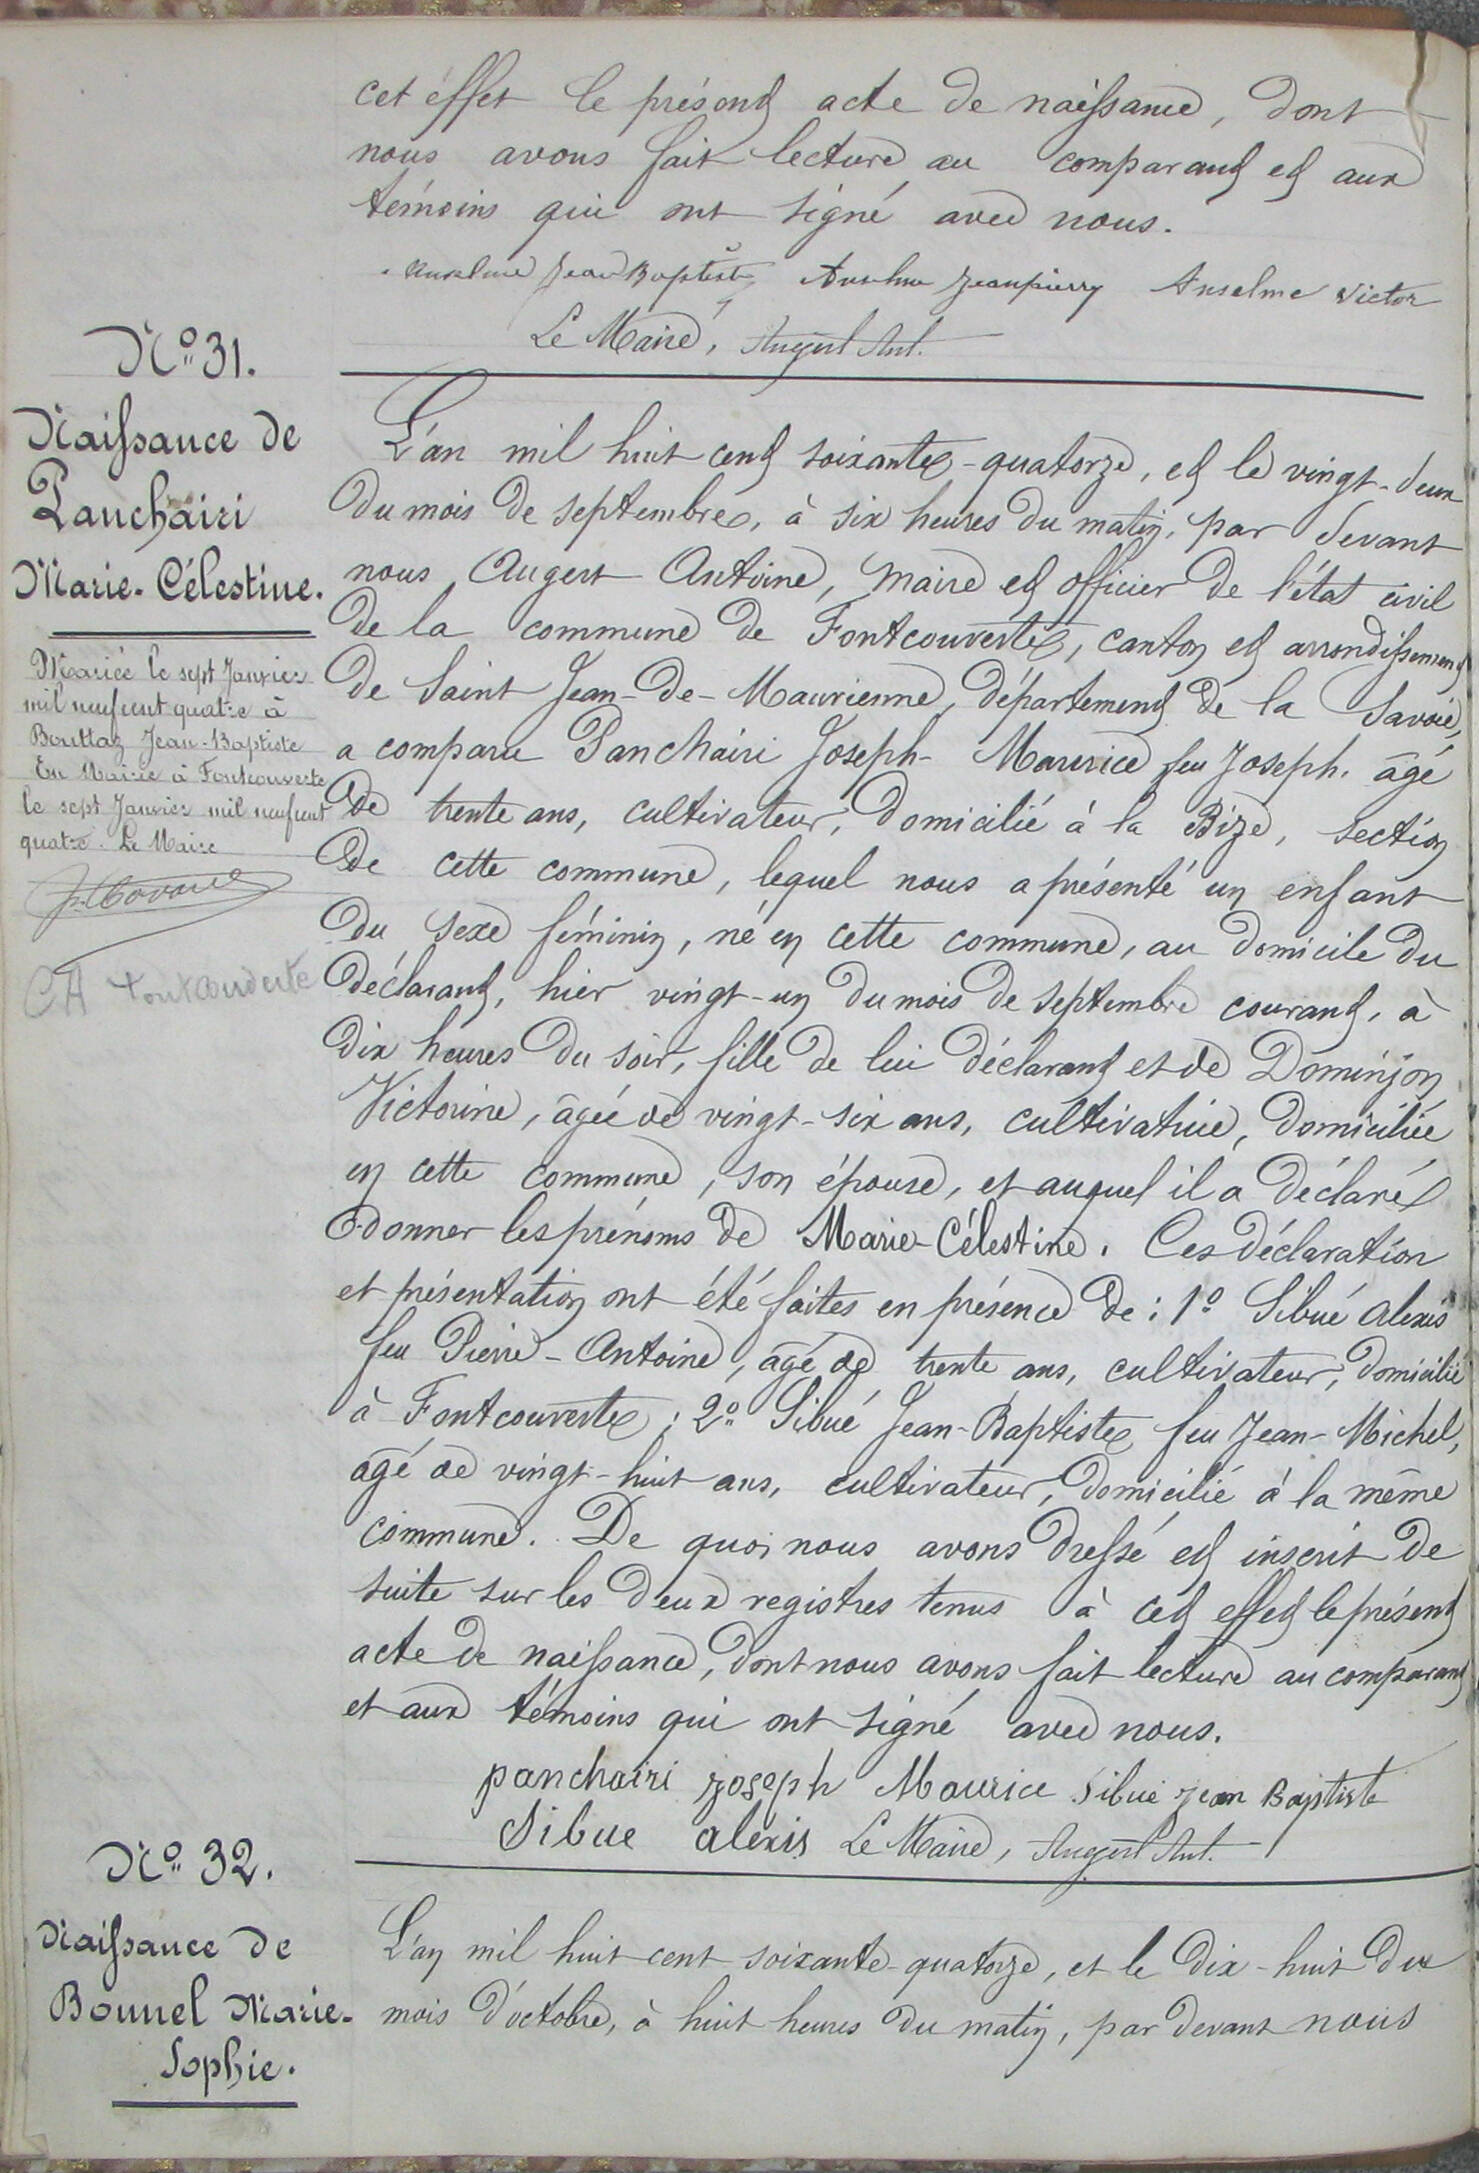 cet éffet le présent acte de naissance, dont
nous avons fait lecture au comparant et aux
témoins qui ont signé avec nous.
Anselme Jean Baptiste Anselme Jeanpierry Anselme Victor
Le Maire, Augert Ant.
N° 31.
Naissance de
Panchairi
Marie-Célestine.
Mariée le sept Janvier
mil neuf cent quatre à
Bouttaz Jean-Baptiste
En Mairie à Fontcouverte
le sept Janvier mil neuf cent
quatre. Le Maire
CH Fontcouverte
L'an mil huit cent soixante-quatorze, et le vingt-deux
du mois de septembre, à six heures du matin, par devant
nous Augert Antoine, maire et officier de l'état civil
de la commune de Fontcouverte, canton et arrondissement
de Saint Jean-de-Maurienne, département de la Savoie,
a comparu Panchairi Joseph-Maurice feu Joseph, âgé
de trente ans, cultivateur, domicilié à la Bize, section
de cette commune, lequel nous a présenté un enfant
du sexe féminin, né en cette commune, au domicile du
déclarant, hier vingt-un du mois de septembre courant, à
dix heures du soir, fille de lui déclarant et de Dominjon
Victorine, âgée de vingt-six ans, cultivatrice, domiciliée
en cette commune, son épouse, et auquel il a déclaré
donner les prénoms de Marie-Célestine. Ces déclaration
et présentation ont été faites en présence de : 1° Sibué Alexis
feu Pierre-Antoine, âgé de trente ans, cultivateur, domicilié
à Fontcouverte ; 2° Sibué Jean-Baptiste feu Jean-Michel,
âgé de vingt-huit ans, cultivateur, domicilié à la même
commune. De quoi nous avons dressé et inscrit de
suite sur les deux registres tenus à cet effet le présent
acte de naissance, dont nous avons fait lecture au comparant
et aux témoins qui ont signé avec nous.
panchairi joseph Maurice Sibué jean Baptiste
Sibue alexis Le Maire, Augert Ant.
N° 32.
Naissance de
Bonnel Marie-
Sophie.
L'an mil huit cent soixante-quatorze, et le dix-huit du
mois d'octobre, à huit heures du matin, par devant nous